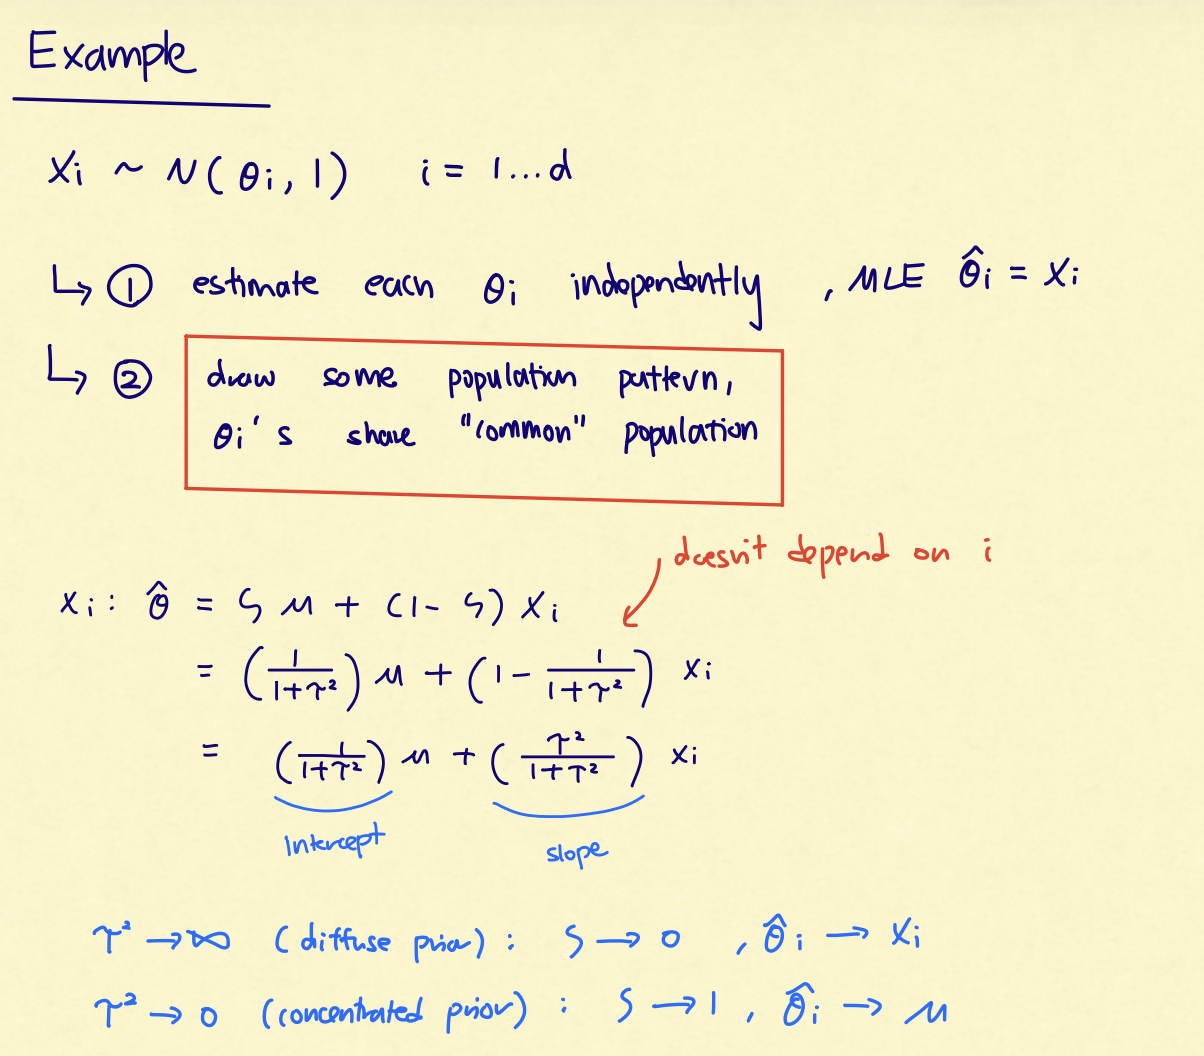 Example
Xi ~ N(θi, 1)   i = 1...d
↳ ① estimate each θi independently , MLE θ̂i = Xi
↳ ② draw some population pattern,
θi's share "common" population
doesn't depend on i
Xi : θ̂ = S μ + (1 - S) Xi
= (1/(1+τ²)) μ + (1 - 1/(1+τ²)) Xi
= (1/(1+τ²)) μ + (τ²/(1+τ²)) Xi
Intercept   slope
τ² → ∞ (diffuse prior) : S → 0 , θ̂i → Xi
τ² → 0 (concentrated prior) : S → 1 , θ̂i → μ